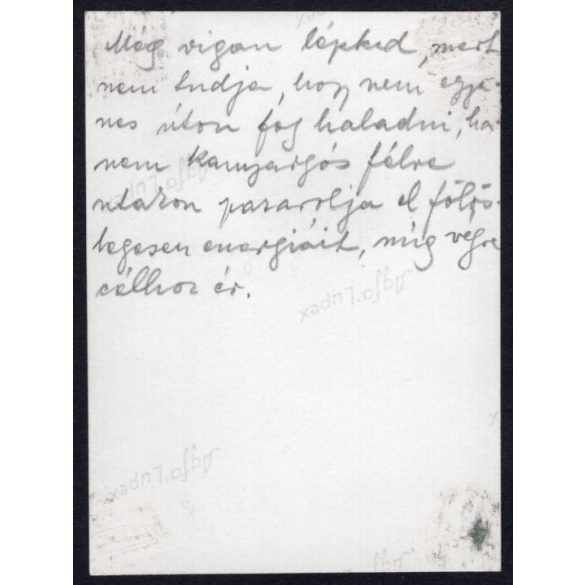 Még vigan lépked, mert
nem tudja, hogy nem egye-
nes úton fog haladni, ha-
nem kanyargós félre
utakon pazarolja el fölös-
legesen energiáit, mig végre
célhoz ér.
Agfa-Lupex
Agfa-Lupex
Agfa-Lupex
Agfa